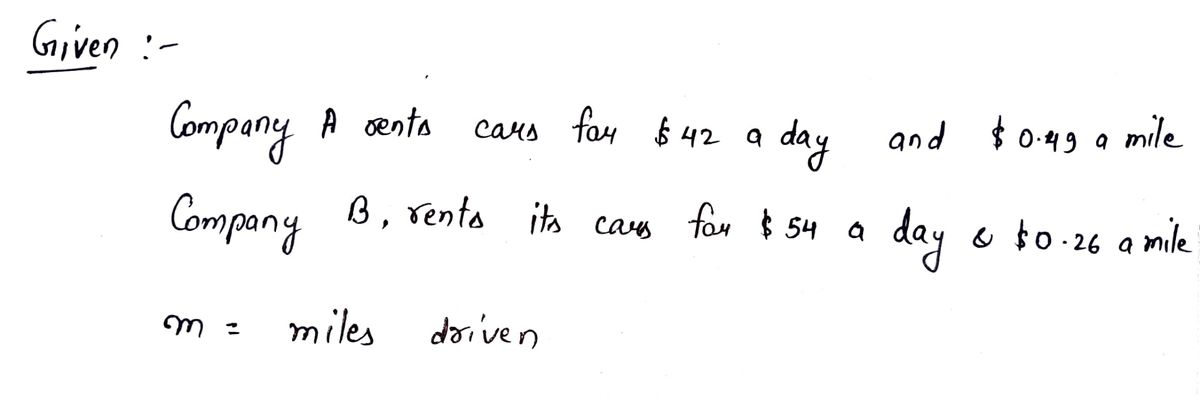 Given :-
Company A rents cars for $ 42 a day and $ 0.49 a mile
Company B, rents its cars for $ 54 a day & $0.26 a mile
m = miles driven